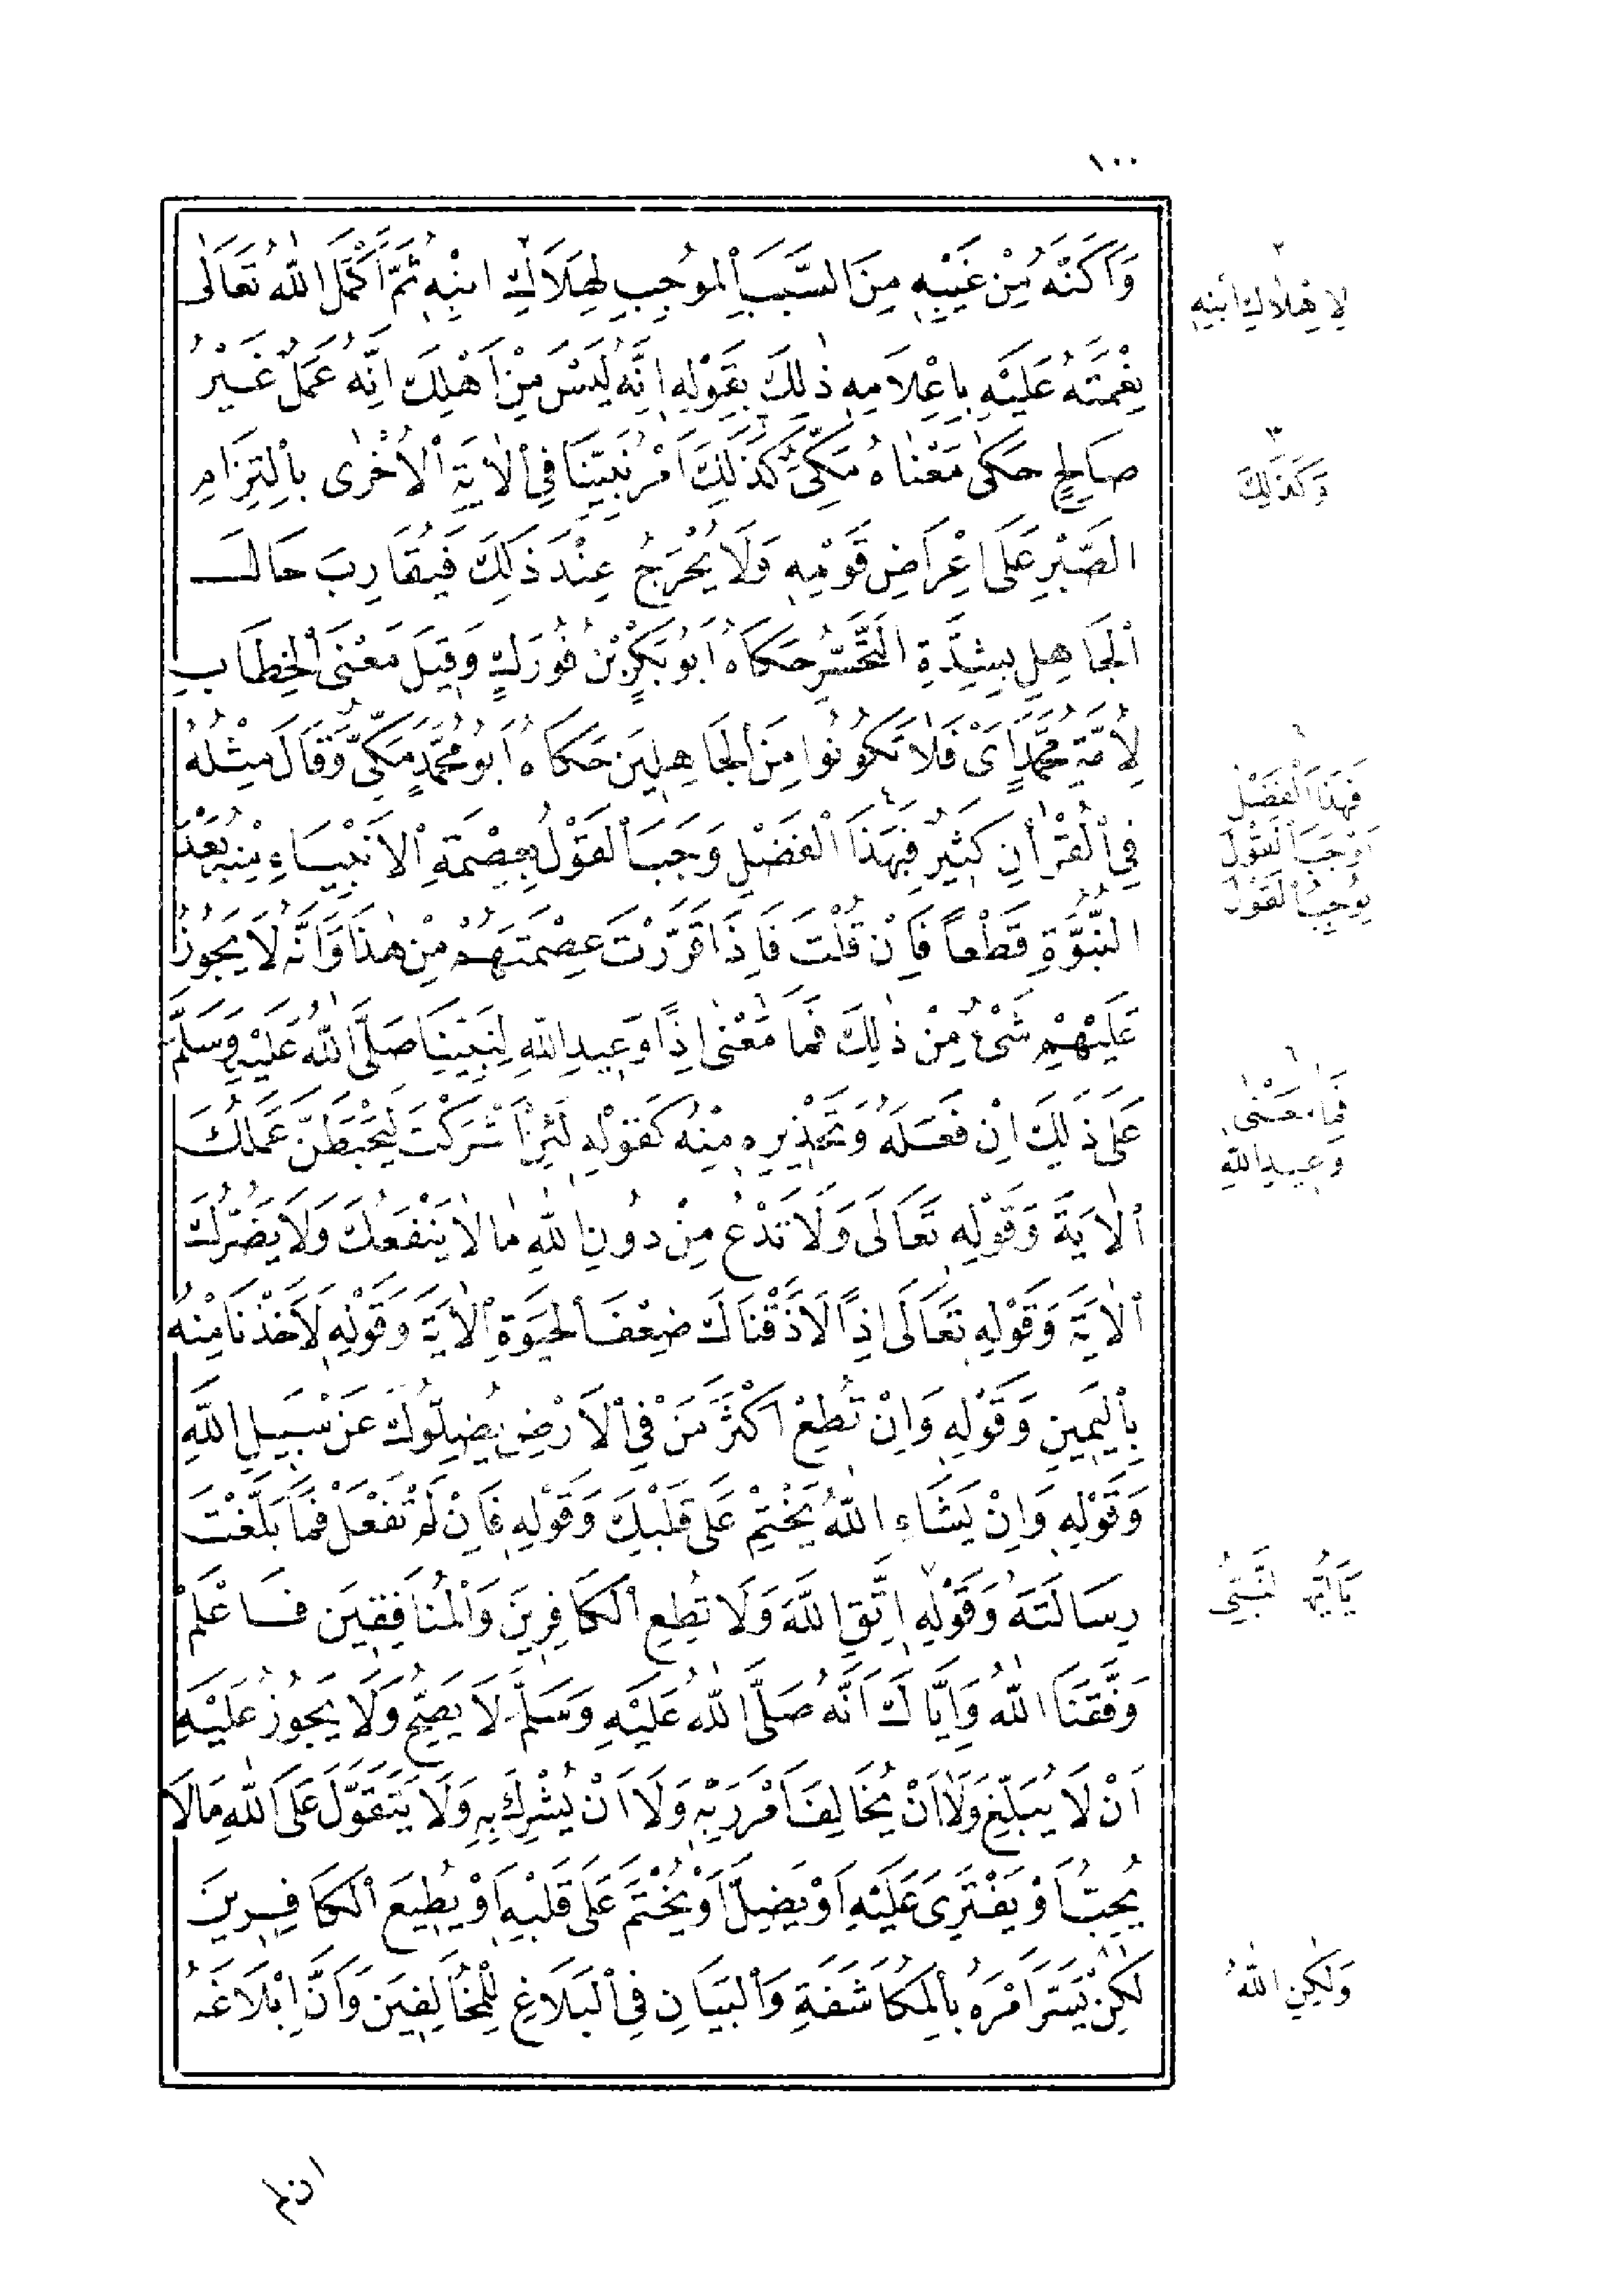 ١٠٠
وَاَكَنَّهُ مِنْ غَيْبِهِ مِنَ السَّبَبِ الْمُوجِبِ لِهَلَاكِ ابْنِهِ ثُمَّ اَكْمَلَ اللّٰهُ تَعَالٰى
نِعْمَتَهُ عَلَيْهِ بِاِعْلَامِهِ ذٰلِكَ بِقَوْلِهِ اِنَّهُ لَيْسَ مِنْ اَهْلِكَ اِنَّهُ عَمَلٌ غَيْرُ
صَالِحٍ حَكٰى مَعْنَاهُ مَكِّىٌّ كَذٰلِكَ اُمِرَ نَبِيُّنَا فِى الْاٰيَةِ الْاُخْرٰى بِالْتِزَامِ
الصَّبْرِ عَلَى اِعْرَاضِ قَوْمِهِ وَلَا يُحْرَجُ عِنْدَ ذٰلِكَ فَيُقَارِبَ حَالَ
الْجَاهِلِ بِشِدَّةِ التَّحَسُّرِ حَكَاهُ اَبُو بَكْرِ بْنُ فُورَكٍ وَقِيلَ مَعْنَى الْخِطَابِ
لِأُمَّةِ مُحَمَّدٍ اَىْ فَلَا تَكُونُوا مِنَ الْجَاهِلِينَ حَكَاهُ اَبُو مُحَمَّدٍ مَكِّىٌّ وَقَالَ مِثْلُهُ
فِى الْقُرْاٰنِ كَثِيرٌ فَبِهَذَا الْفَضْلِ وَجَبَ الْقَوْلُ بِعِصْمَةِ الْاَنْبِيَاءِ مِنْهُ بَعْدَ
النُّبُوَّةِ قَطْعاً فَاِنْ قُلْتَ فَاِذَا قَرَّرْتَ عِصْمَتَهُمْ مِنْ هٰذَا وَاَنَّهُ لَا يَجُوزُ
عَلَيْهِمْ شَىْءٌ مِنْ ذٰلِكَ فَمَا مَعْنٰى اِذًا وَعِيدِ اللّٰهِ لِنَبِيِّنَا صَلَّى اللّٰهُ عَلَيْهِ وَسَلَّمَ
عَلٰى ذٰلِكَ اِنْ فَعَلَهُ وَتَحْذِيرِهِ مِنْهُ كَقَوْلِهِ لَئِنْ اَشْرَكْتَ لَيَحْبَطَنَّ عَمَلُكَ
الْاٰيَةَ وَقَوْلِهِ تَعَالَى وَلَا تَدْعُ مِنْ دُونِ اللّٰهِ مَا لَا يَنْفَعُكَ وَلَا يَضُرُّكَ
الْاٰيَةَ وَقَوْلِهِ تَعَالَى اِذًا لَاَذَقْنَاكَ ضِعْفَ الْحَيٰوةِ الْاٰيَةَ وَقَوْلِهِ لَاَخَذْنَا مِنْهُ
بِالْيَمِينِ وَقَوْلِهِ وَاِنْ تُطِعْ اَكْثَرَ مَنْ فِى الْاَرْضِ يُضِلُّوكَ عَنْ سَبِيلِ اللّٰهِ
وَقَوْلِهِ وَاِنْ يَشَاءِ اللّٰهُ يَخْتِمْ عَلَى قَلْبِكَ وَقَوْلِهِ فَاِنْ لَمْ تَفْعَلْ فَمَا بَلَّغْتَ
رِسَالَتَهُ وَقَوْلِهِ اِتَّقِ اللّٰهَ وَلَا تُطِعِ الْكَافِرِينَ وَالْمُنَافِقِينَ فَاعْلَمْ
وَفَّقَنَا اللّٰهُ وَاِيَّاكَ اَنَّهُ صَلَّى اللّٰهُ عَلَيْهِ وَسَلَّمَ لَا يَصِحُّ وَلَا يَجُوزُ عَلَيْهِ
اَنْ لَا يُبَلِّغَ وَلَا اَنْ يُخَالِفَ اَمْرَ رَبِّهِ وَلَا اَنْ يُشْرِكَ بِهِ وَلَا يَتَقَوَّلَ عَلَى اللّٰهِ مَا لَا
يُحِبُّ اَوْ يَفْتَرِىَ عَلَيْهِ اَوْ يَضِلَّ اَوْ يُخْتَمَ عَلَى قَلْبِهِ اَوْ يُطِيعَ الْكَافِرِينَ
لٰكِنْ يَسَّرَ اَمْرَهُ بِالْمُكَاشَفَةِ وَالْبَيَانِ فِى الْبَلَاغِ لِلْمُخَالِفِينَ وَاَنَّ اِبْلَاغَهُ
٢
لِاِهْلَاكِ ابْنِهِ
٣
وَكَذٰلِكَ
٦
فَهَذَا الْفَضْلُ
اَوْجَبَ الْقَوْلَ
يُوجِبُ الْقَوْلَ
٦
فَمَا مَعْنٰى
وَعِيدِ اللّٰهِ
يَا اَيُّهَا النَّبِىُّ
وَلٰكِنِ اللّٰهُ